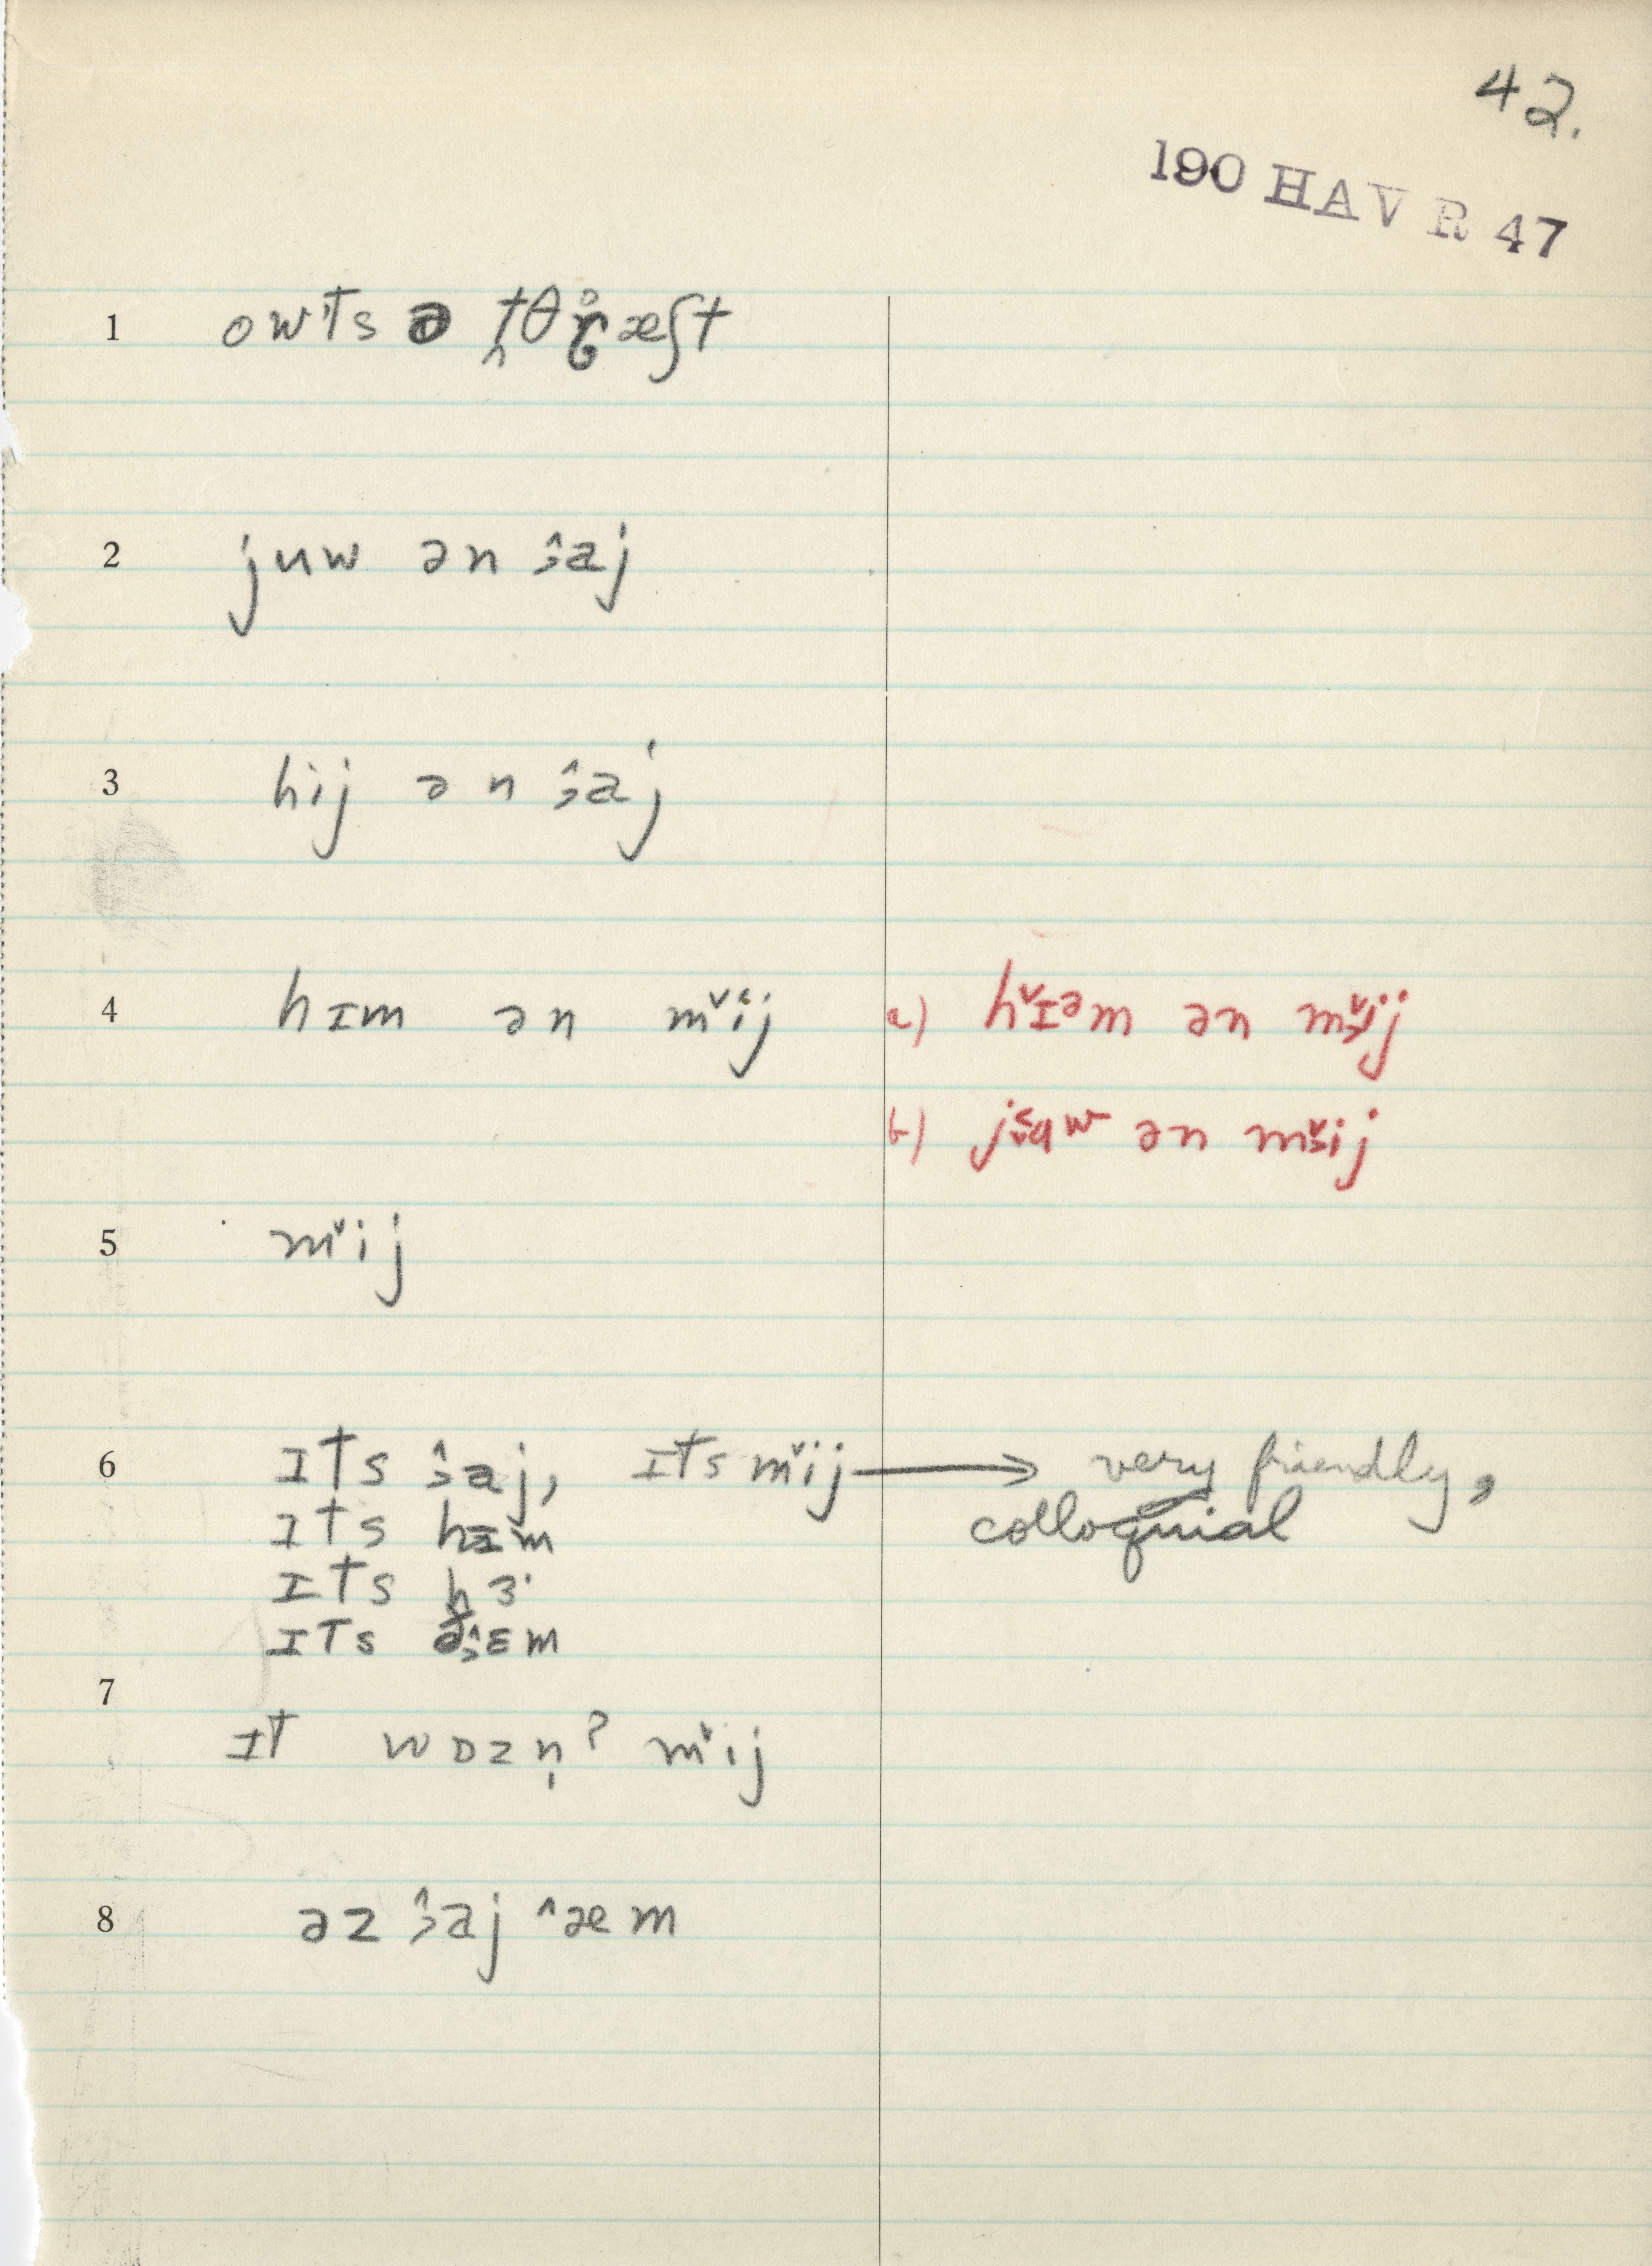 42.
190 HAV R 47
1 owɪts ə t̯θr̥æʃt
2 juw ən ɜ̯̂aj
3 hij ən ɜ̯̂aj
4 hɪm ən mˇij a) hˇɪᵊm ən mˇij
b) ən mˇij
5 mˇij
6 ɪts ɜ̯̂aj, ɪts mˇij → very friendly,
colloquial
ɪts hɪm
ɪts hɜ·
ɪts
7
ɪt wɒzn̩? mˇij
8 əz ɜ̯̂aj ˆæm